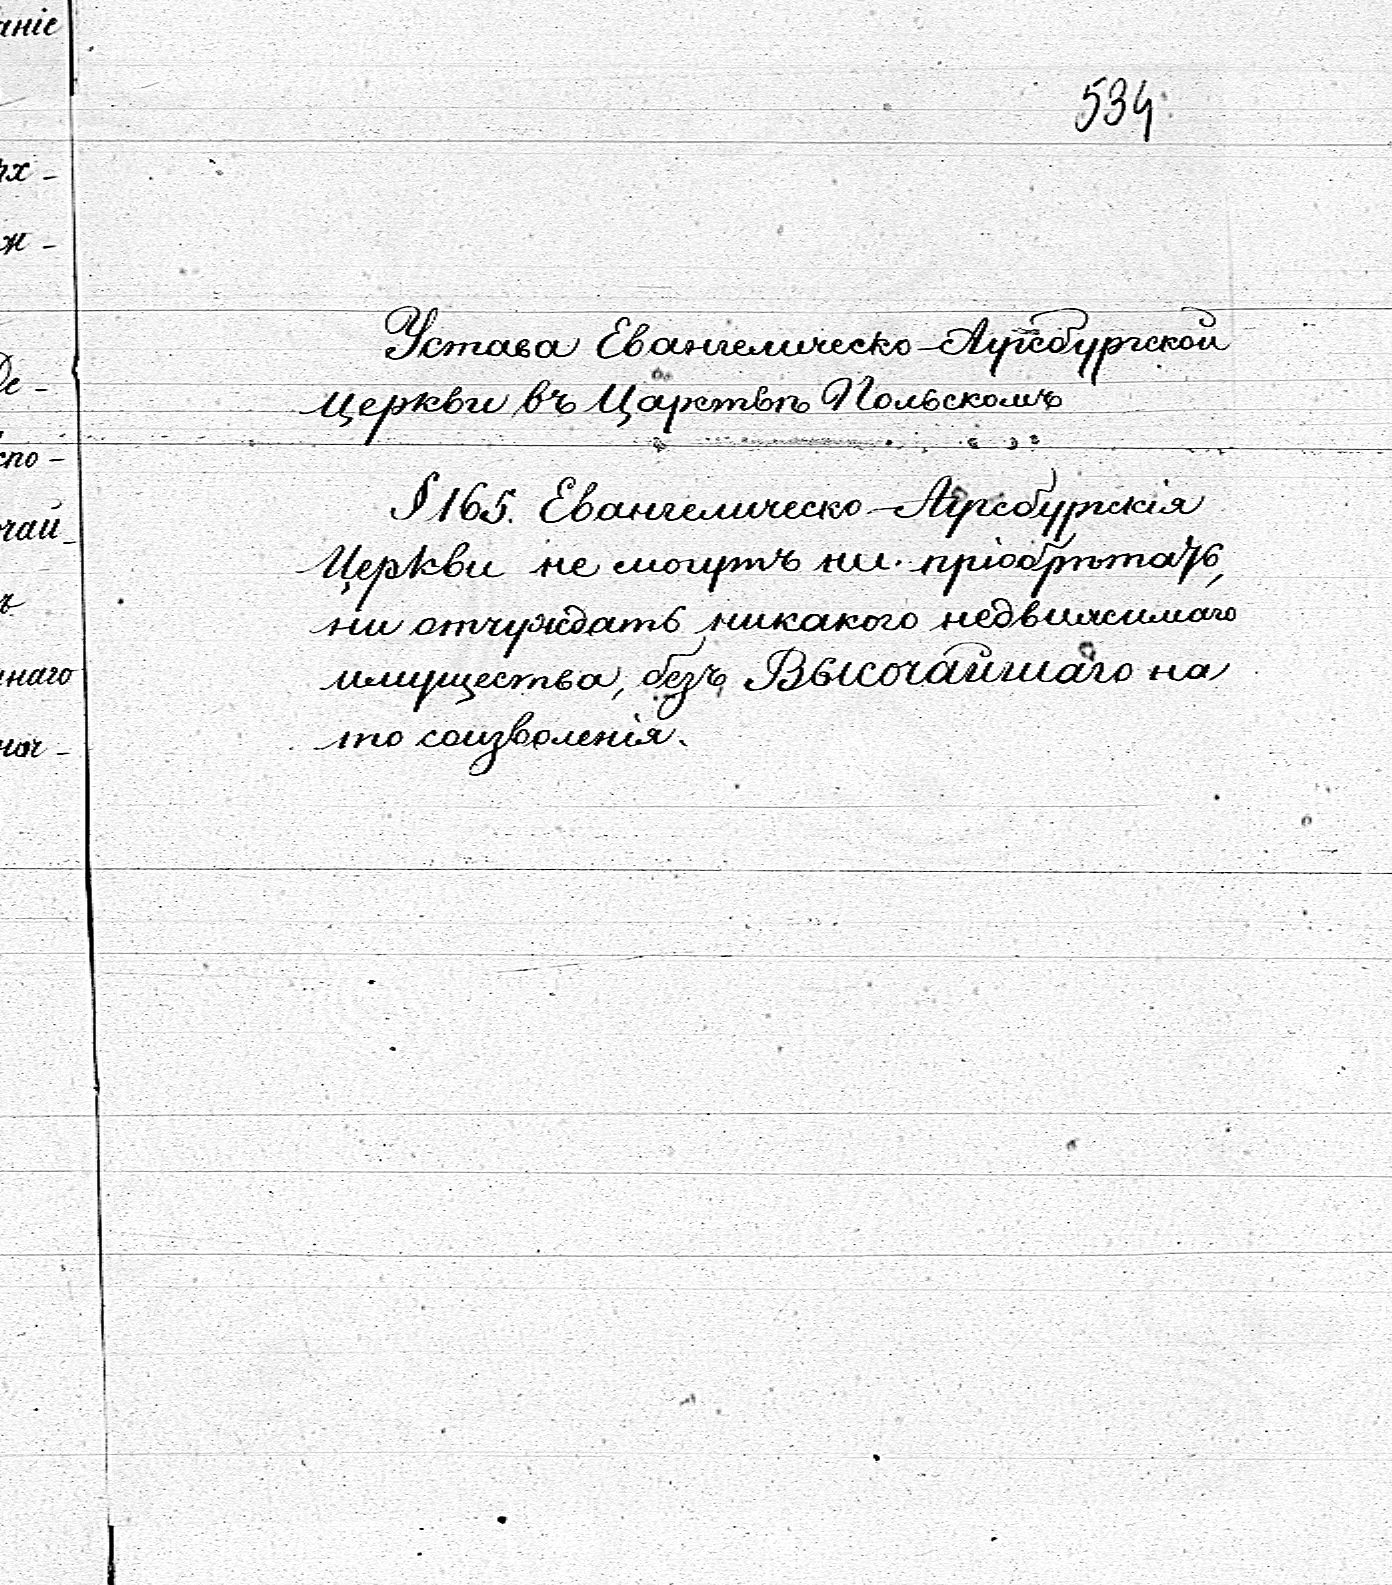 534
Устава Евангелическо-Аугсбургской
Церкви въ Царствѣ Польскомъ
§ 165. Евангелическо-Аугсбургскія
Церкви не могутъ ни пріобрѣтать,
ни отчуждать никакого недвижимаго
имущества, безъ Высочайшаго на
то соизволенія.
аніе
ых-
ж-
де-
спо-
чай-
ъ
ннаго